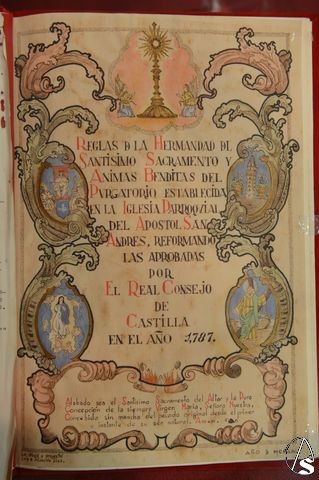 REGLAS D LA HERMANDAD DL
SANTISIMO SACRAMENTO Y
ANIMAS BENDITAS DEL
PURGATORIO ESTABLECIDA
EN LA IGLESIA PARROQUIAL
DEL APOSTOL SAN
ANDRES, REFORMANDO
LAS APROBADAS
POR
EL REAL CONSEJO
DE
CASTILLA
EN EL AÑO 1787.
Alabado sea el Santisimo Sacramento del Altar y la Pura
Concepcion de la siempre Virgen Maria, Señora Nuestra,
Concebida sin mancha del pecado original desde el primer
instante de su ser natural. Amen.
AÑO D